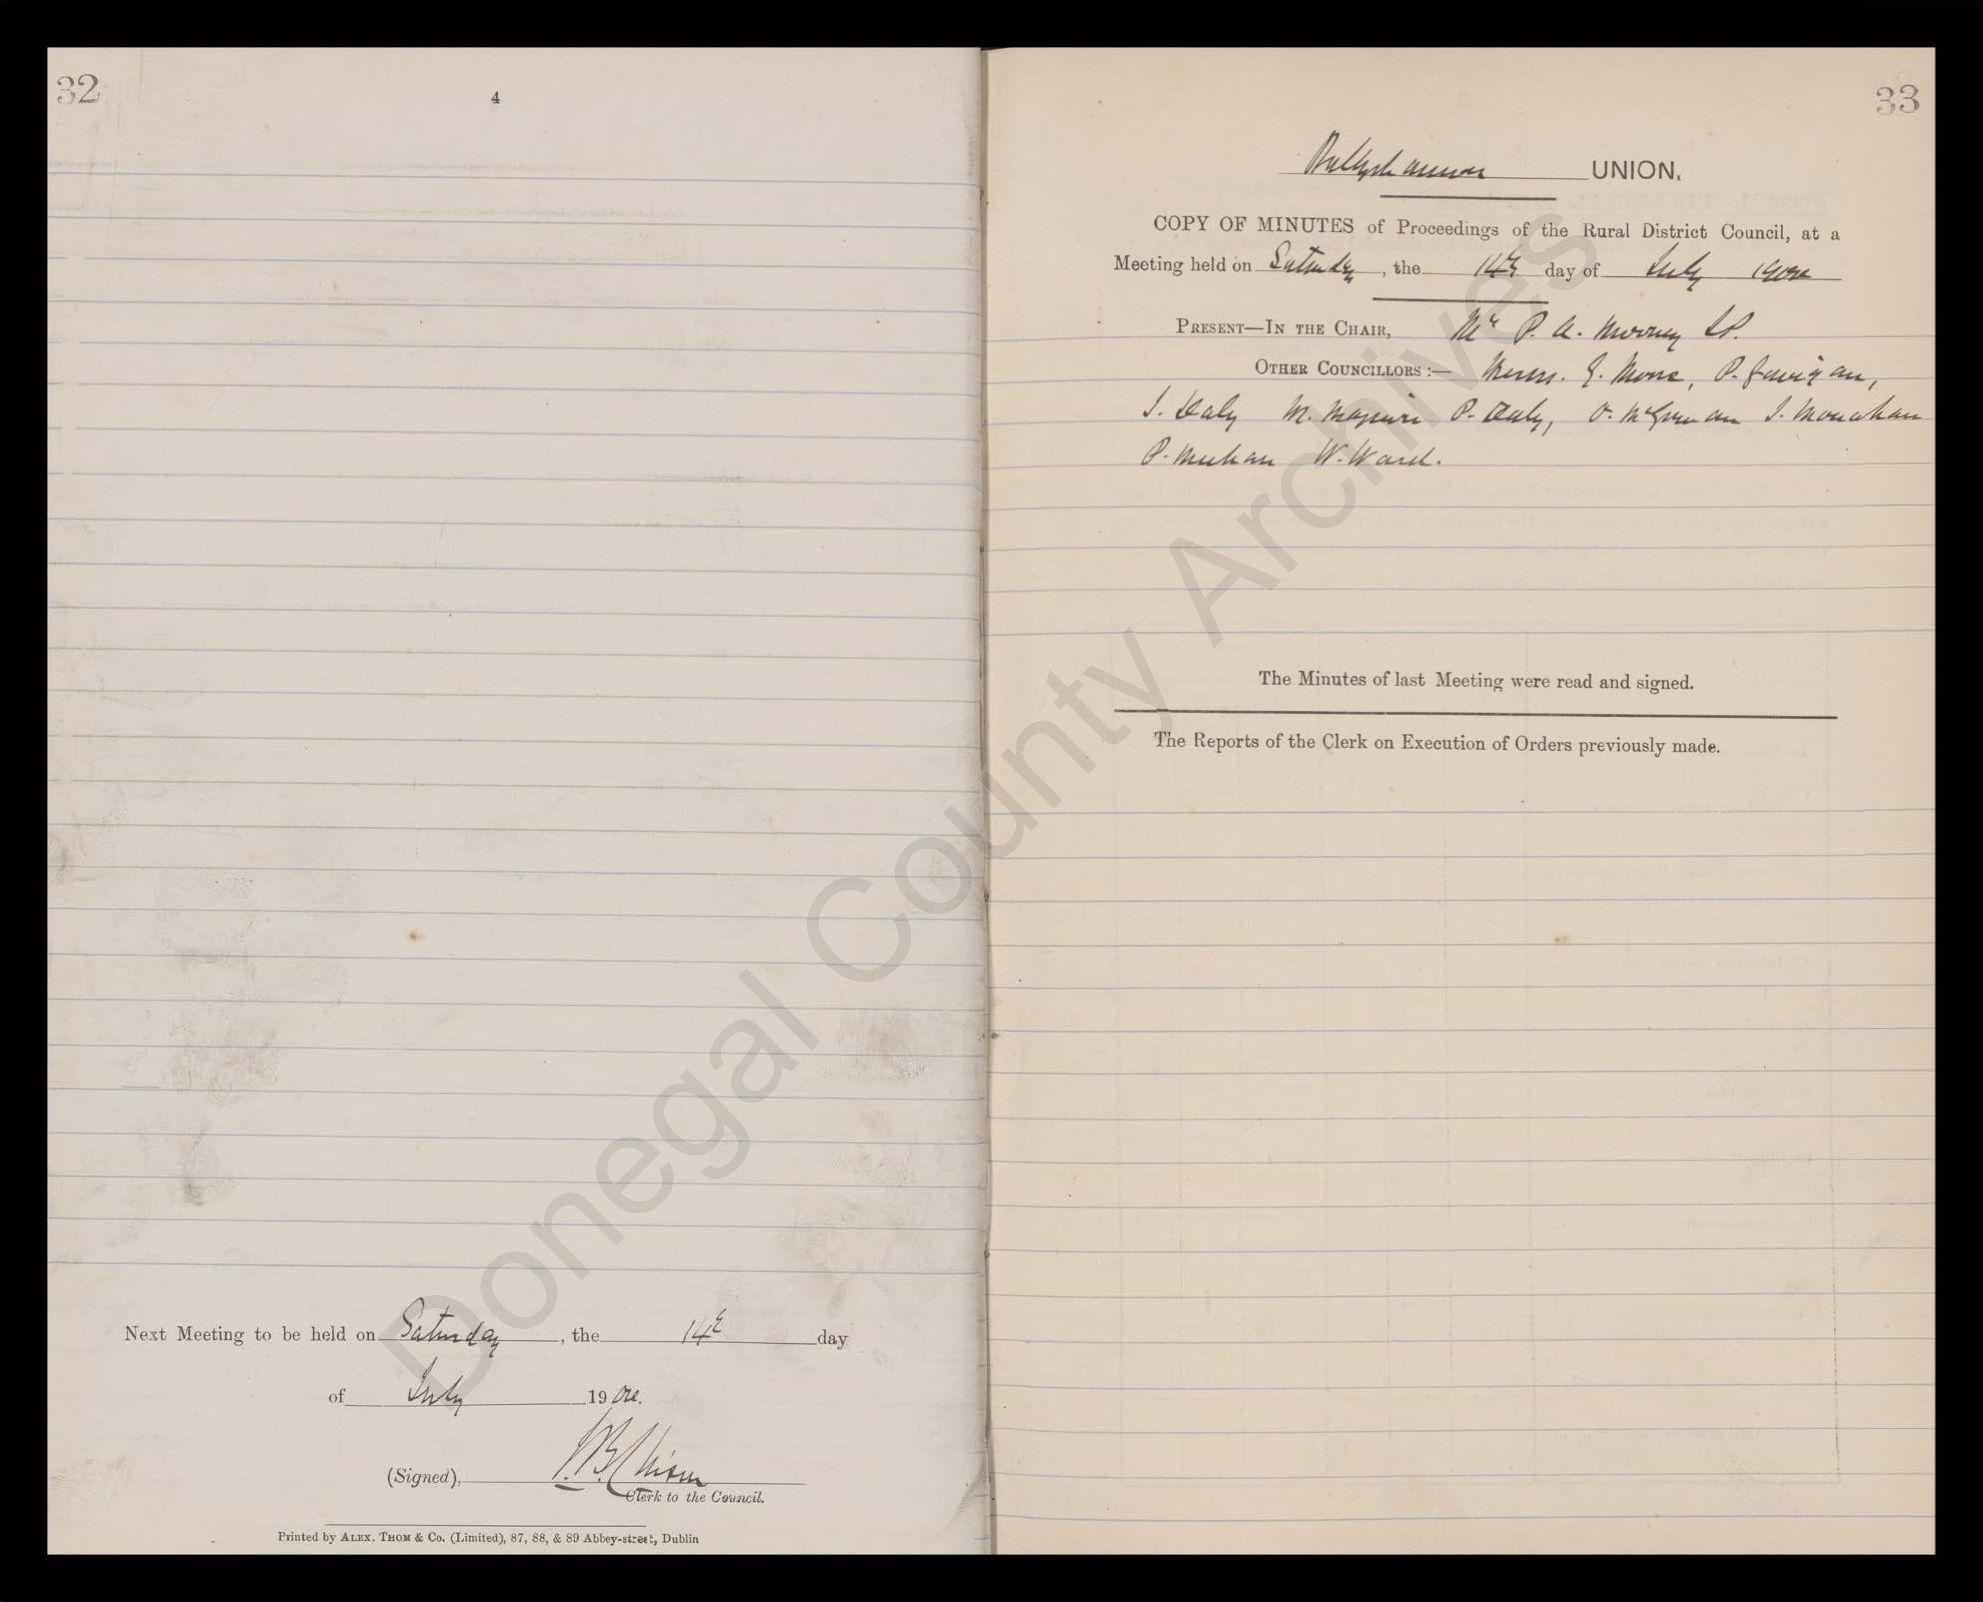 32
4
Next Meeting to be held on Saturday, the 14th day
of July 1900.
(Signed),
Clerk to the Council.
Printed by ALEX. THOM & Co. (Limited), 87, 88, & 89 Abbey-street, Dublin
33
Ballyshannon UNION.
COPY OF MINUTES of Proceedings of the Rural District Council, at a
Meeting held on Saturday, the 14th day of July 1900
PRESENT—IN THE CHAIR, Mr P. A. Murray J.P.
OTHER COUNCILLORS :— Messrs. P. Gavigan,
J. Daly M. Maguire P. Daly, J. Monahan
P. Meehan W. Ward.
The Minutes of last Meeting were read and signed.
The Reports of the Clerk on Execution of Orders previously made.
Donegal County Archives